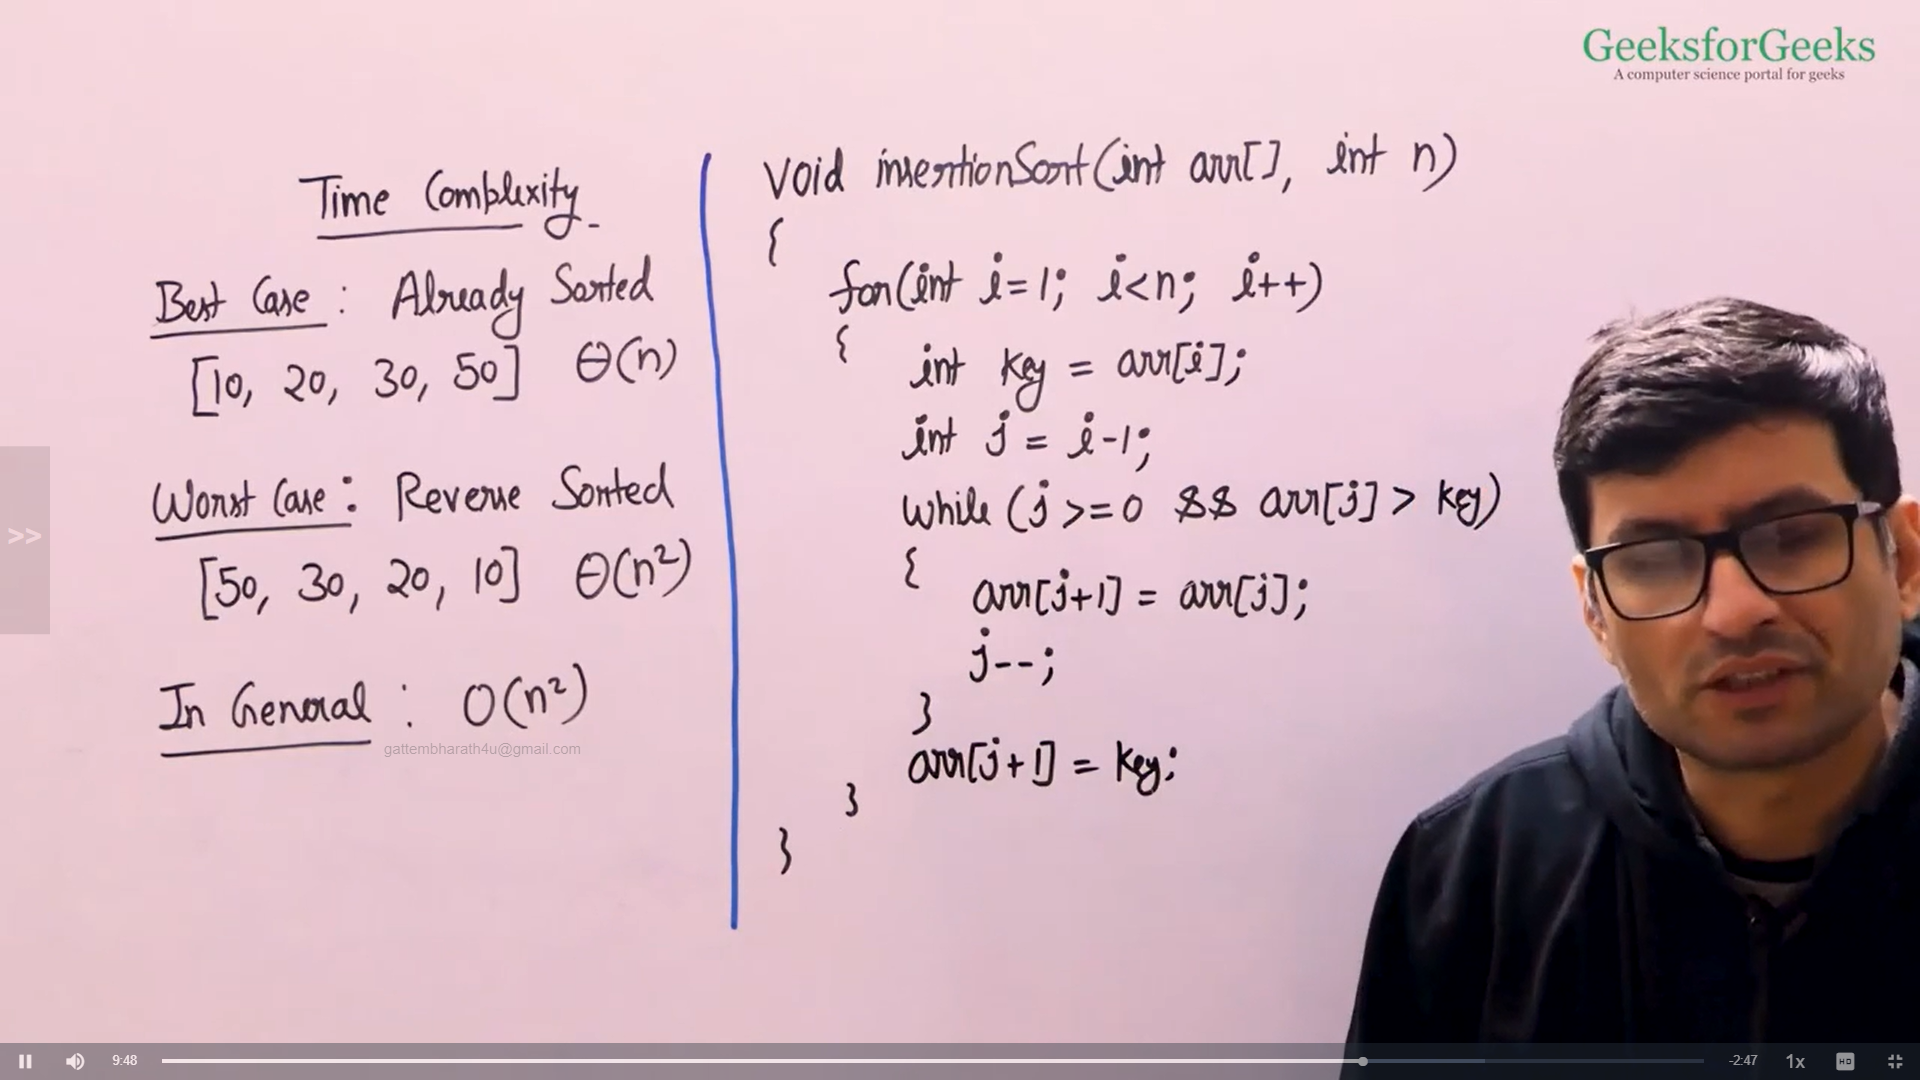 GeeksforGeeks
A computer science portal for geeks
Time Complexity
Best Case : Already Sorted
[10, 20, 30, 50] Θ(n)
Worst Case : Reverse Sorted
[50, 30, 20, 10] Θ(n²)
In General : O(n²)
gattembharath4u@gmail.com
void insertionSort(int arr[], int n)
{
for(int i=1; i<n; i++)
{ int key = arr[i];
int j = i-1;
while (j >=0 && arr[j] > key)
{ arr[j+1] = arr[j];
j--;
}
arr[j+1] = key;
}
}
>>
9:48
-2:47
1x
HD